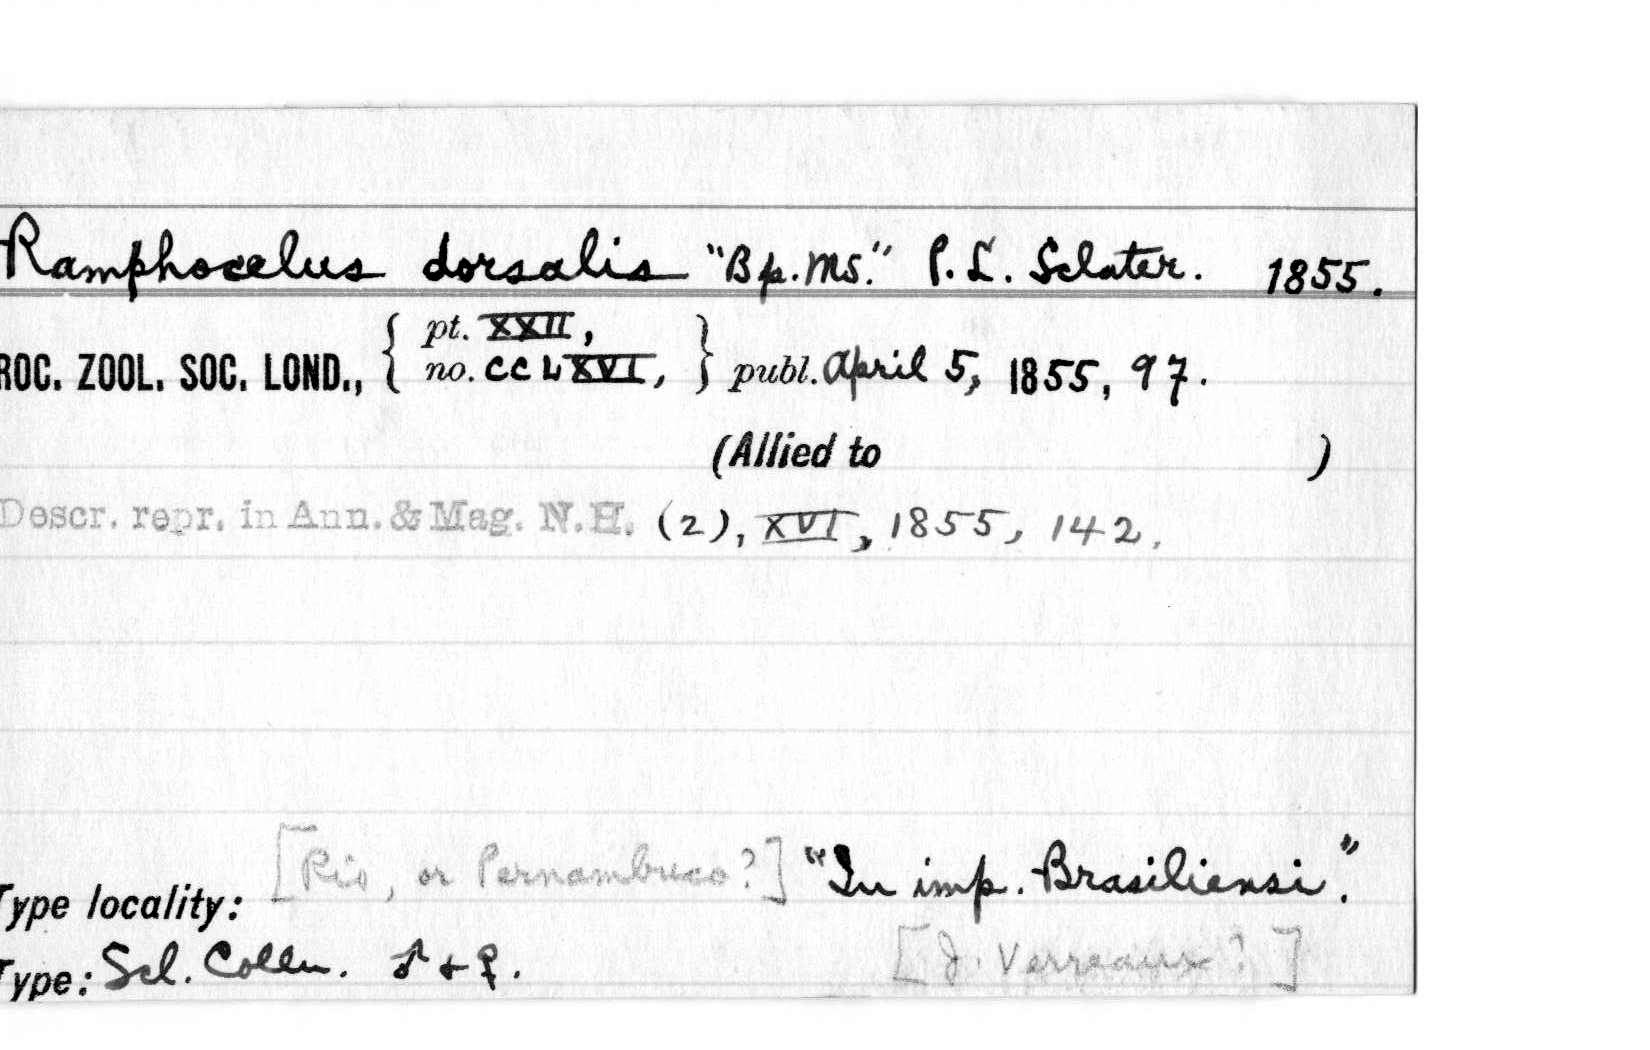 Ramphocelus dorsalis "Bp. MS." P. L. Sclater. 1855.
pt. XXII,
ROC. ZOOL. SOC. LOND., { no. CCLXVI, } publ. April 5, 1855, 97.
(Allied to )
Descr. repr. in Ann. & Mag. N.H. (2), XVI, 1855, 142.
Type locality: [Rio, or Pernambuco?] "In imp. Brasiliensi".
Type: Scl. Colln. ♂ + ♀. [J. Verreaux?]